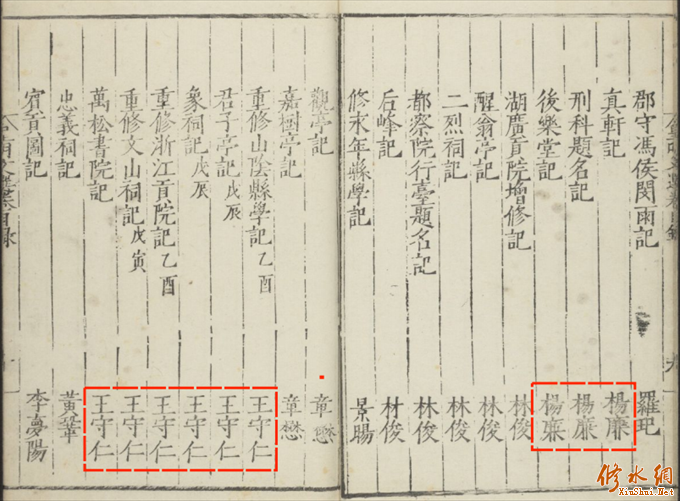 郡守馮侯閔雨記 羅玘
真軒記 楊廉
刑科題名記 楊廉
後樂堂記 楊廉
湖廣貢院增修記 林俊
醒翁亭記 林俊
二烈祠記 林俊
都察院行臺題名記 林俊
后峰記 材俊
修末年縣學記 景暘
觀亭記 章懋
嘉樹亭記 章懋
重修山陰縣學記乙酉 王守仁
君子亭記戊辰 王守仁
象祠記戊辰 王守仁
重修浙江貢院記乙酉 王守仁
重修文山祠記戊寅 王守仁
萬松書院記 王守仁
忠義祠記 黃
賓貢圖記 李夢陽
目錄
修水網
XiuShui.Net